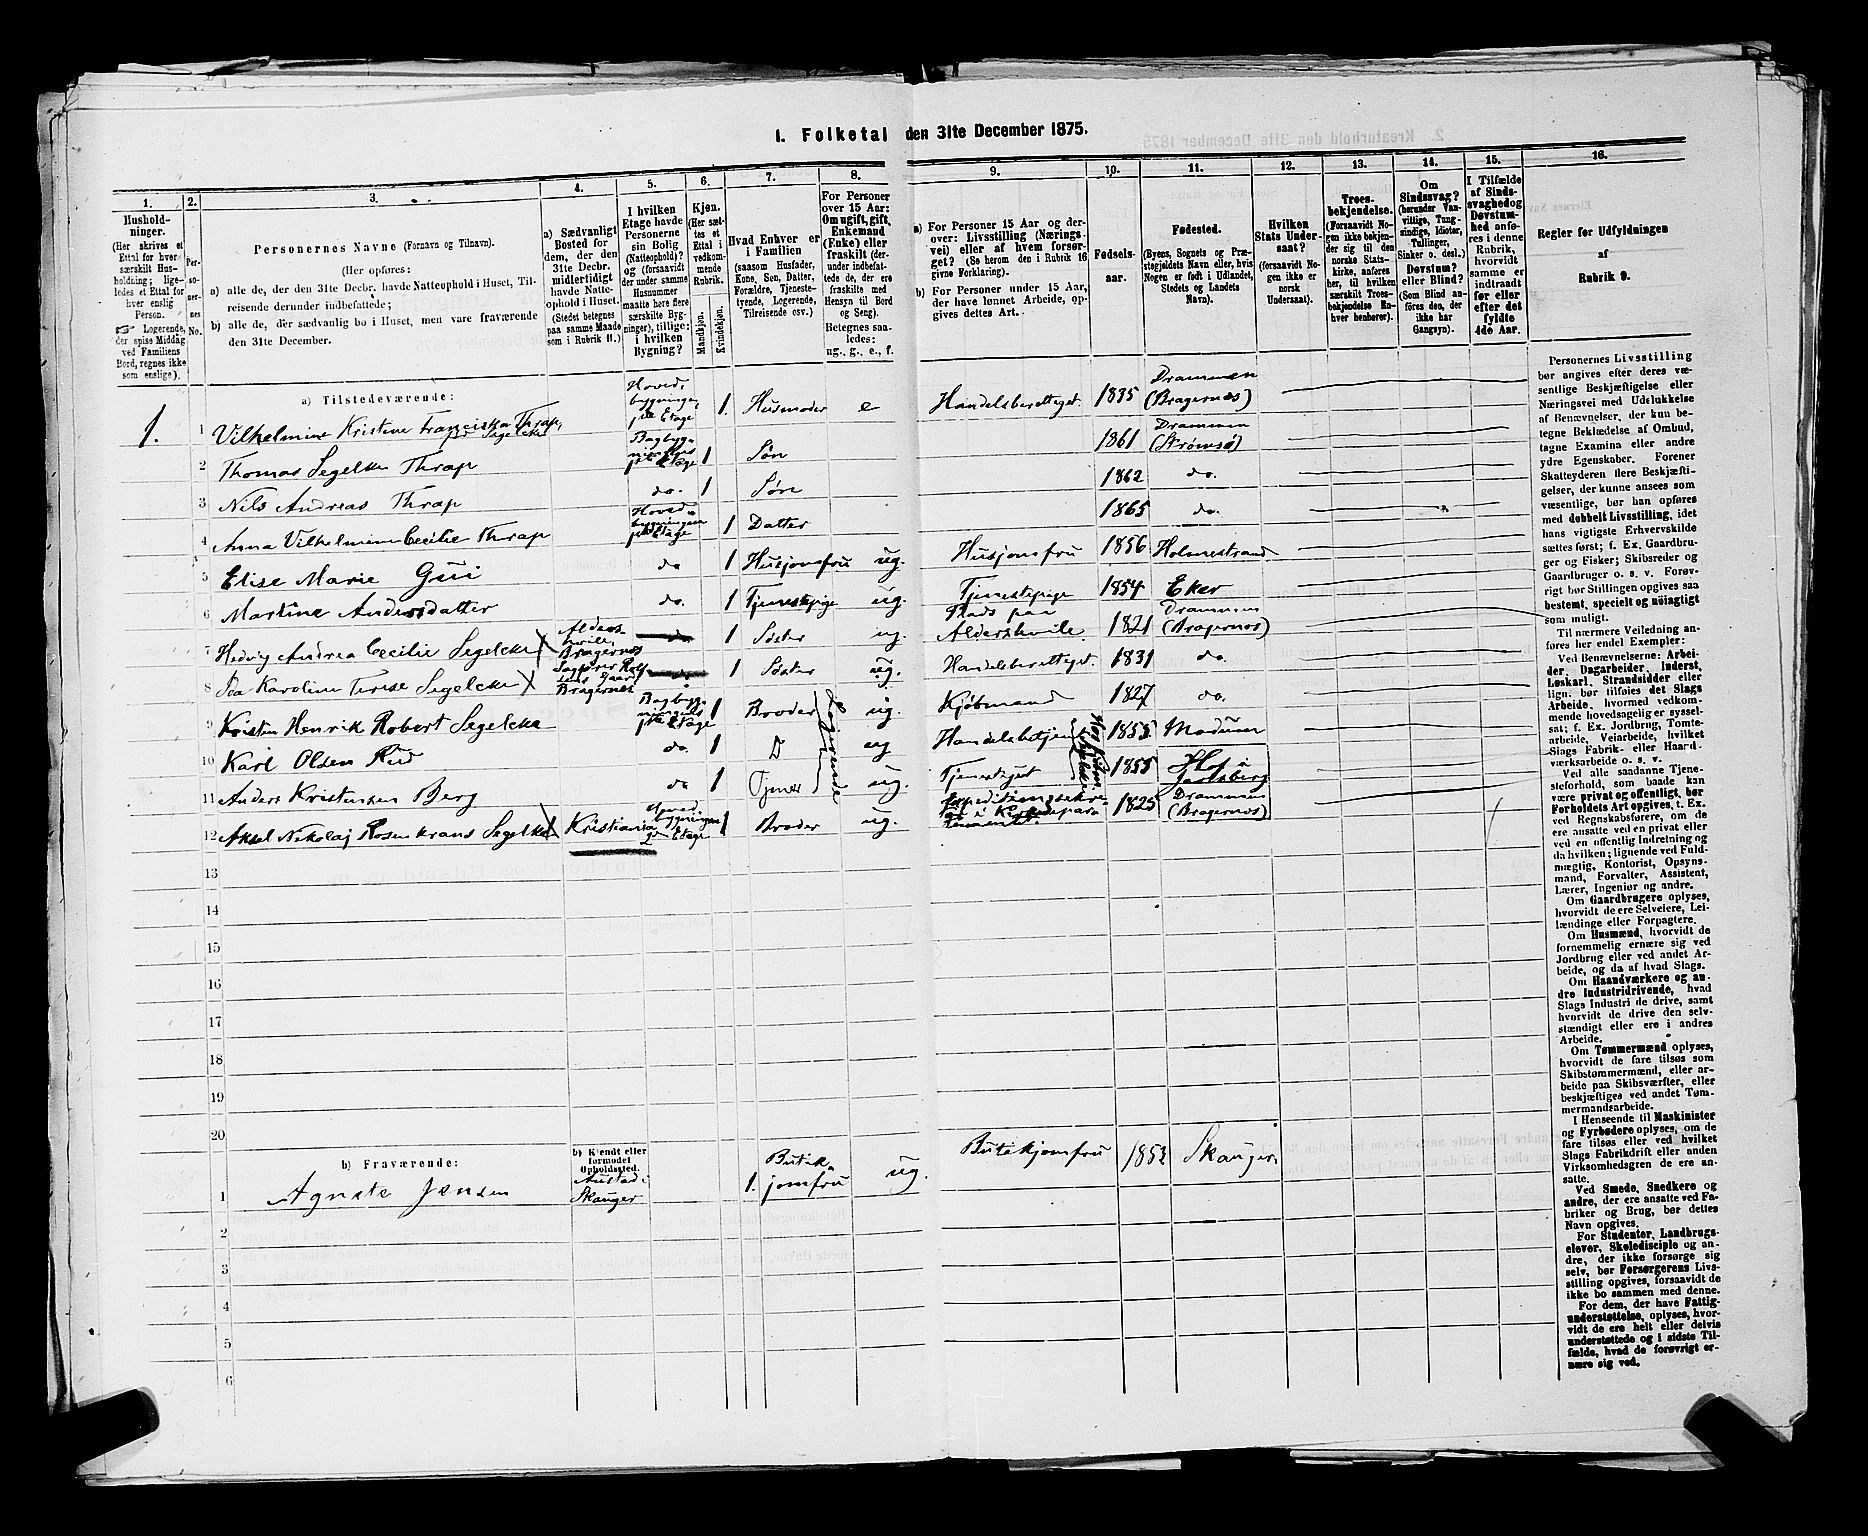 1. Folketal den 31te December 1875.
1.
Hushold-
ninger.
(Her skrives et
Ettal for hver
særskilt Hus-
holdning; lige-
ledes et Ettal for
hver enslig
Person.
☞ Logerende,
der spise Middag
ved Familiens
Bord, regnes ikke
som enslige).
2.
Per-
so-
ner-
nes
No.
3.
Personernes Navne (Fornavn og Tilnavn).
(Her opføres:
a) alle de, der den 31te Decbr. havde Natteophold i Huset, Til-
reisende derunder indbefattede;
b) alle de, der sædvanlig bo i Huset, men vare fraværende
den 31te December.
4.
a) Sædvanligt
Bosted for
dem, der den
31te Decbr.
midlertidigt
havde Natte-
ophold i Huset.
(Stedet betegnes
paa samme Maade
som i Rubrik 11.)
5.
I hvilken
Etage havde
Personerne
sin Bolig
(Natteophold)?
og (forsaavidt
der under samme
Husnummer
maatte høre flere
særskilte Byg-
ninger), tillige:
i hvilken
Bygning?
6.
Kjøn.
(Her sæt-
tes et
Ettal i
vedkom-
mende
Rubrik.
Mandkjøn.
Kvindekjøn.
7.
Hvad Enhver er
i Familien
(saasom Husfader,
Kone, Søn, Datter,
Forældre, Tjeneste-
tyende, Logerende,
Tilreisende osv.)
8.
For Personer
over 15 Aar:
Om ugift, gift,
Enkemand
(Enke) eller
fraskilt (der-
under indbefat-
tede de, der ere
fraskilte med
Hensyn til Bord
og Seng).
Betegnes saa-
ledes:
ug., g., e., f.
9.
a) For Personer 15 Aar og der-
over: Livsstilling (Nærings-
vei) eller af hvem forsør-
get? (Se herom den i Rubrik 16
givne Forklaring).
b) For Personer under 15 Aar,
der have lønnet Arbeide, op-
gives dettes Art.
10.
Fødsels-
aar.
11.
Fødested.
(Byens, Sognets og Præ-
stegjeldets Navn eller, hvis
Nogen er født i Udlandet,
Stedets og Landets
Navn).
12.
Hvilken
Stats Under-
saat?
(forsaavidt No-
gen ikke er
norsk
Undersaat).
13.
Troes-
bekjendelse.
(Forsaavidt No-
gen ikke bekjen-
der sig til den
norske Stats-
kirke, anføres
her, til hvilken
særskilt Troes-
bekjendelse En-
hver henhører).
14.
Om
Sindssvag?
(herunder Van-
vittige, Tung-
sindige, Idioter,
Tullinger,
Sinker o. desl.)
Døvstum?
eller Blind?
(Som Blind an-
føres den, der
ikke har
Gangsyn).
15.
I Tilfælde
af Sinds-
svaghed og
Døvstum-
hed anfø-
res i denne
Rubrik,
hvorvidt
samme er
indtraadt
før eller
efter det
fyldte
4de Aar.
16.
Regler for Udfyldningen
af
Rubrik 9.
a) Tilstedeværende:
1. 1 Vilhelmine Kristine Franciska Thrap, fød Segelcke Hovedbygningen, 1. Husmoder e Handelsberettiget 1835 Drammen (Bragernæs)
2 Thomas Segelcke Thrap 1 Søn 1861 Drammen (Strømsø)
3 Nils Andreas Thrap do. 1 Søn 1862 do.
4 Anna Vilhelmine Cecilie Thrap 1 Datter 1865 do.
5 Elise Marie Gui do 1 Husjomfru ug. Husjomfru 1856 Holmestrand
6 Martine Andersdatter do. 1 Tjenestepige ug. Tjenestepige 1854 Eker
7 Hedvig Andrea Cecilie Segelcke Bragernæs do 1 Søster ug. Plads paa Aldershvile 1821 Drammen (Bragernæs)
8 Ida Karoline Terese Segelcke Bragernæs do 1 Søster ug. Handelsberettiget. 1831 do.
9 Kristen Henrik Robert Segelcke 1 Broder ug. Kjøbmand 1827 do.
10 Karl Olsen Rud do. 1 D ug Handelsbetjent 1855 Modum
11 Anders Kristensen Berg do 1 Tjener ug. 1855 Hof i Jarlsberg
Logerende
12 Aksel Nikolaj Rosenkrans Segelcke Kristiania 2 Etage 1 Broder ug. 1825 Drammen (Bragernæs)
13
14
15
16
17
18
19
20
b) Fraværende:
b) Kjendt eller
formodet
Opholdssted.
1 Agnete Jensen Skauger 1. Butikjomfru ug. Butikjomfru Skauger
2
3
4
5
6
Personernes Livsstilling
bør angives efter deres væ-
sentlige Beskjæftigelse eller
Næringsvei med Udelukkelse
af Benævnelser, der kun be-
tegne Beklædelse af Ombud,
tagne Examina eller andre
ydre Egenskaber. Forener
Skatteyderen flere Beskjæfti-
gelser, der kunne ansees som
væsentlige, bør han opføres
med dobbelt Livsstilling, idet
hans vigtigste Erhvervskilde
sættes først; f. Ex. Gaardbru-
ger og Fisker; Skibsreder og
Gaardbruger o. s. v. Forøv-
rigt bør Stillingen opgives saa
bestemt, specielt og nöiagtigt
som muligt.
Til nærmere Veiledning an-
føres her endel Exempler:
Ved Benævnelserne: Arbei-
der, Dagarbeider, Inderst,
Løskarl, Strandsidder eller
lign. bør tilføies det Slags
Arbeide, hvormed vedkom-
mende hovedsagelig er syssel-
sat; f. Ex. Jordbrug, Tomte-
arbeide, Veiarbeide, hvilket
Slags Fabrik- eller Haand-
værksarbeide o. s. v.
Ved alle saadanne Tjene-
steforhold, som baade kan
være privat og offentligt, bør
Forholdets Art opgives, t. Ex.
ved Regnskabsførere, om de
ere ansatte ved en privat eller
ved en offentlig Indretning og
da hvilken; lignende ved Fuld-
mægtig, Kontorist, Opsyns-
mand, Forvalter, Assistent,
Lærer, Ingeniør og andre.
Om Gaardbrugere oplyses,
hvorvidt de ere Selveiere, Lei-
lændinge eller Forpagtere.
Om Husmænd, hvorvidt de
fornemmelig ernære sig ved
Jordbrug eller ved andet Ar-
beide, og da af hvad Slags.
Om Haandværkere og an-
dre Industridrivende, hvad
Slags Industri de drive, samt
hvorvidt de drive den selv-
stændigt eller ere i andres
Arbeide.
Om Tømmermænd oplyses,
hvorvidt de fare tilsøs som
Skibstømmermænd, eller ar-
beide paa Skibsværfter, eller
beskjæftiges ved andet Tøm-
mermandsarbeide.
I Henseende til Maskinister
og Fyrbødere oplyses, om de
fare tilsøs eller ved hvilket
Slags Fabrikdrift eller anden
Virksomhedsgren de ere an-
satte.
Ved Smede, Snedkere og
andre, der ere ansatte ved Fa-
briker og Brug, bør dettes
Navn opgives.
For Studenter, Landbrugs-
elever, Skoledisciple og an-
dre, der ikke forsørge sig
selv, bør Forsørgerens Livs-
stilling opgives, forsaavidt de
ikke bo sammen med denne.
For dem, der have Fattig-
understøttelse, oplyses, hvor-
vidt de ere helt eller delvis
understøttede og i sidste Til-
fælde, hvad de forøvrigt er-
nære sig ved.